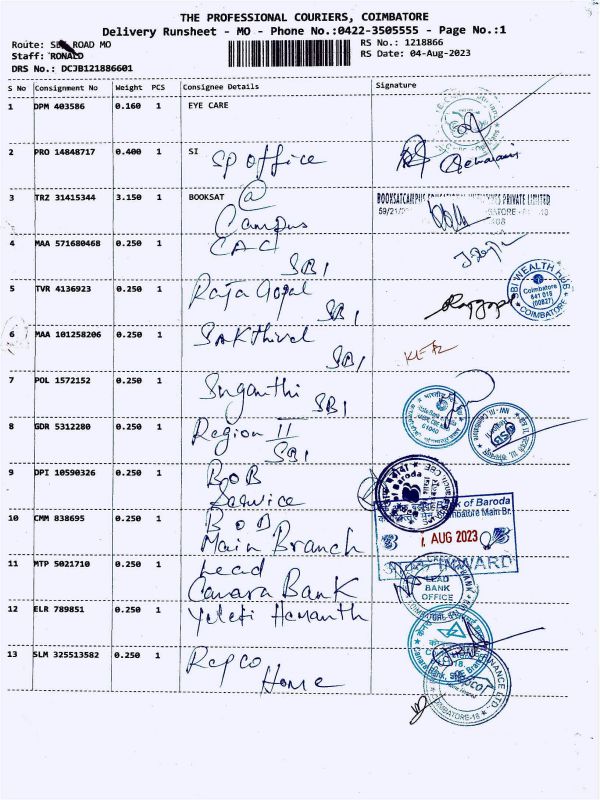 THE PROFESSIONAL COURIERS, COIMBATORE
Delivery Runsheet - MO - Phone No.:0422-3505555 - Page No.:1
Route: ROAD MO
RS No.: 1218866
Staff: RONALD
RS Date: 04-Aug-2023
DRS No.: DCJB121886601
S No Consignment No Weight PCS Consignee Details Signature
1 DPM 403586 0.160 1 EYE CARE
2 PRO 14848717 0.400 1 SI SP office
3 TRZ 31415344 3.150 1 BOOKSAT @
Campus
BOOKSATCAMPUS PRIVATE LIMITED
4 MAA 571680468 0.250 1 CAC
SBI
5 TVR 4136923 0.250 1 Raja Gopal
SBI
SBI WEALTH HUB
Coimbatore
641 018
(00827)
COIMBATORE
Rajgopal
6 MAA 101258206 0.250 1 Sakthivel
SBI
7 POL 1572152 0.250 1 Suganthi
SBI
8 GDR 5312280 0.250 1 Region II
SBI
9 DPI 10590326 0.250 1 BOB
Service
of Baroda
10 CMM 838695 0.250 1 BOB
Main Branch
Bank of Baroda
Coimbatore Main Br.
AUG 2023
INWARD
11 MTP 5021710 0.250 1 Lead
Canara Bank
LEAD
BANK
OFFICE
12 ELR 789851 0.250 1 Yeleti Hemanth
Canara Bank
13 SLM 325513582 0.250 1 Repco
Home
COIMBATORE-18